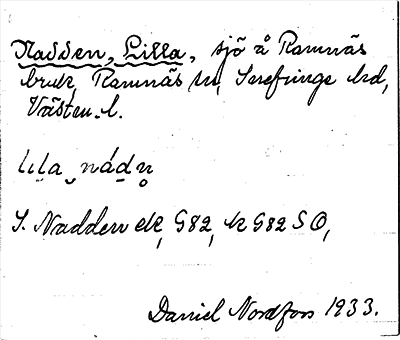 Nadden, Lilla, sjö å Ramnäs
bruk, Ramnäs sn, Snefringe hd,
Västm. l.
lila nádņ
S. Nadden ek, G82, k G82 SO,
Daniel Nordfors 1933.